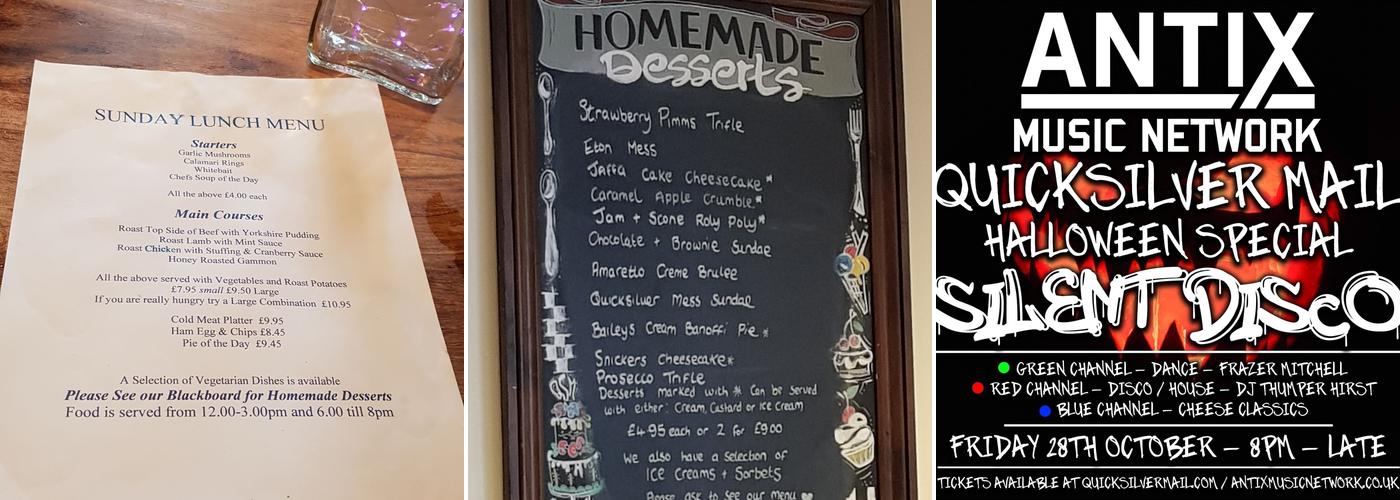 SUNDAY LUNCH MENU
Starters
Garlic Mushrooms
Calamari Rings
Whitebait
Chefs Soup of the Day
All the above £4.00 each
Main Courses
Roast Top Side of Beef with Yorkshire Pudding
Roast Lamb with Mint Sauce
Roast Chicken with Stuffing & Cranberry Sauce
Honey Roasted Gammon
All the above served with Vegetables and Roast Potatoes
£7.95 small £9.50 Large
If you are really hungry try a Large Combination £10.95
Cold Meat Platter £9.95
Ham Egg & Chips £8.45
Pie of the Day £9.45
A Selection of Vegetarian Dishes is available
Please See our Blackboard for Homemade Desserts
Food is served from 12.00-3.00pm and 6.00 till 8pm
HOMEMADE
Desserts
Strawberry Pimms Trifle
Eton Mess
Jaffa Cake Cheesecake *
Caramel Apple Crumble *
Jam + Scone Roly Poly *
Chocolate + Brownie Sundae
Amaretto Creme Brulee
Quicksilver Mess Sundae
Baileys Cream Banoffi Pie *
Snickers Cheesecake *
Prosecco Trifle
Desserts marked with * Can be served
with either: Cream, Custard or Ice Cream
£4.95 each or 2 for £9.00
We also have a selection of
ICE Creams + Sorbets
Please ask to see our menu
ANTIX
MUSIC NETWORK
QUICKSILVER MAIL
HALLOWEEN SPECIAL
SILENT DISCO
GREEN CHANNEL – DANCE – FRAZER MITCHELL
RED CHANNEL – DISCO / HOUSE – DJ THUMPER HIRST
BLUE CHANNEL – CHEESE CLASSICS
FRIDAY 28TH OCTOBER – 8PM – LATE
TICKETS AVAILABLE AT QUICKSILVERMAIL.COM / ANTIXMUSICNETWORK.CO.UK